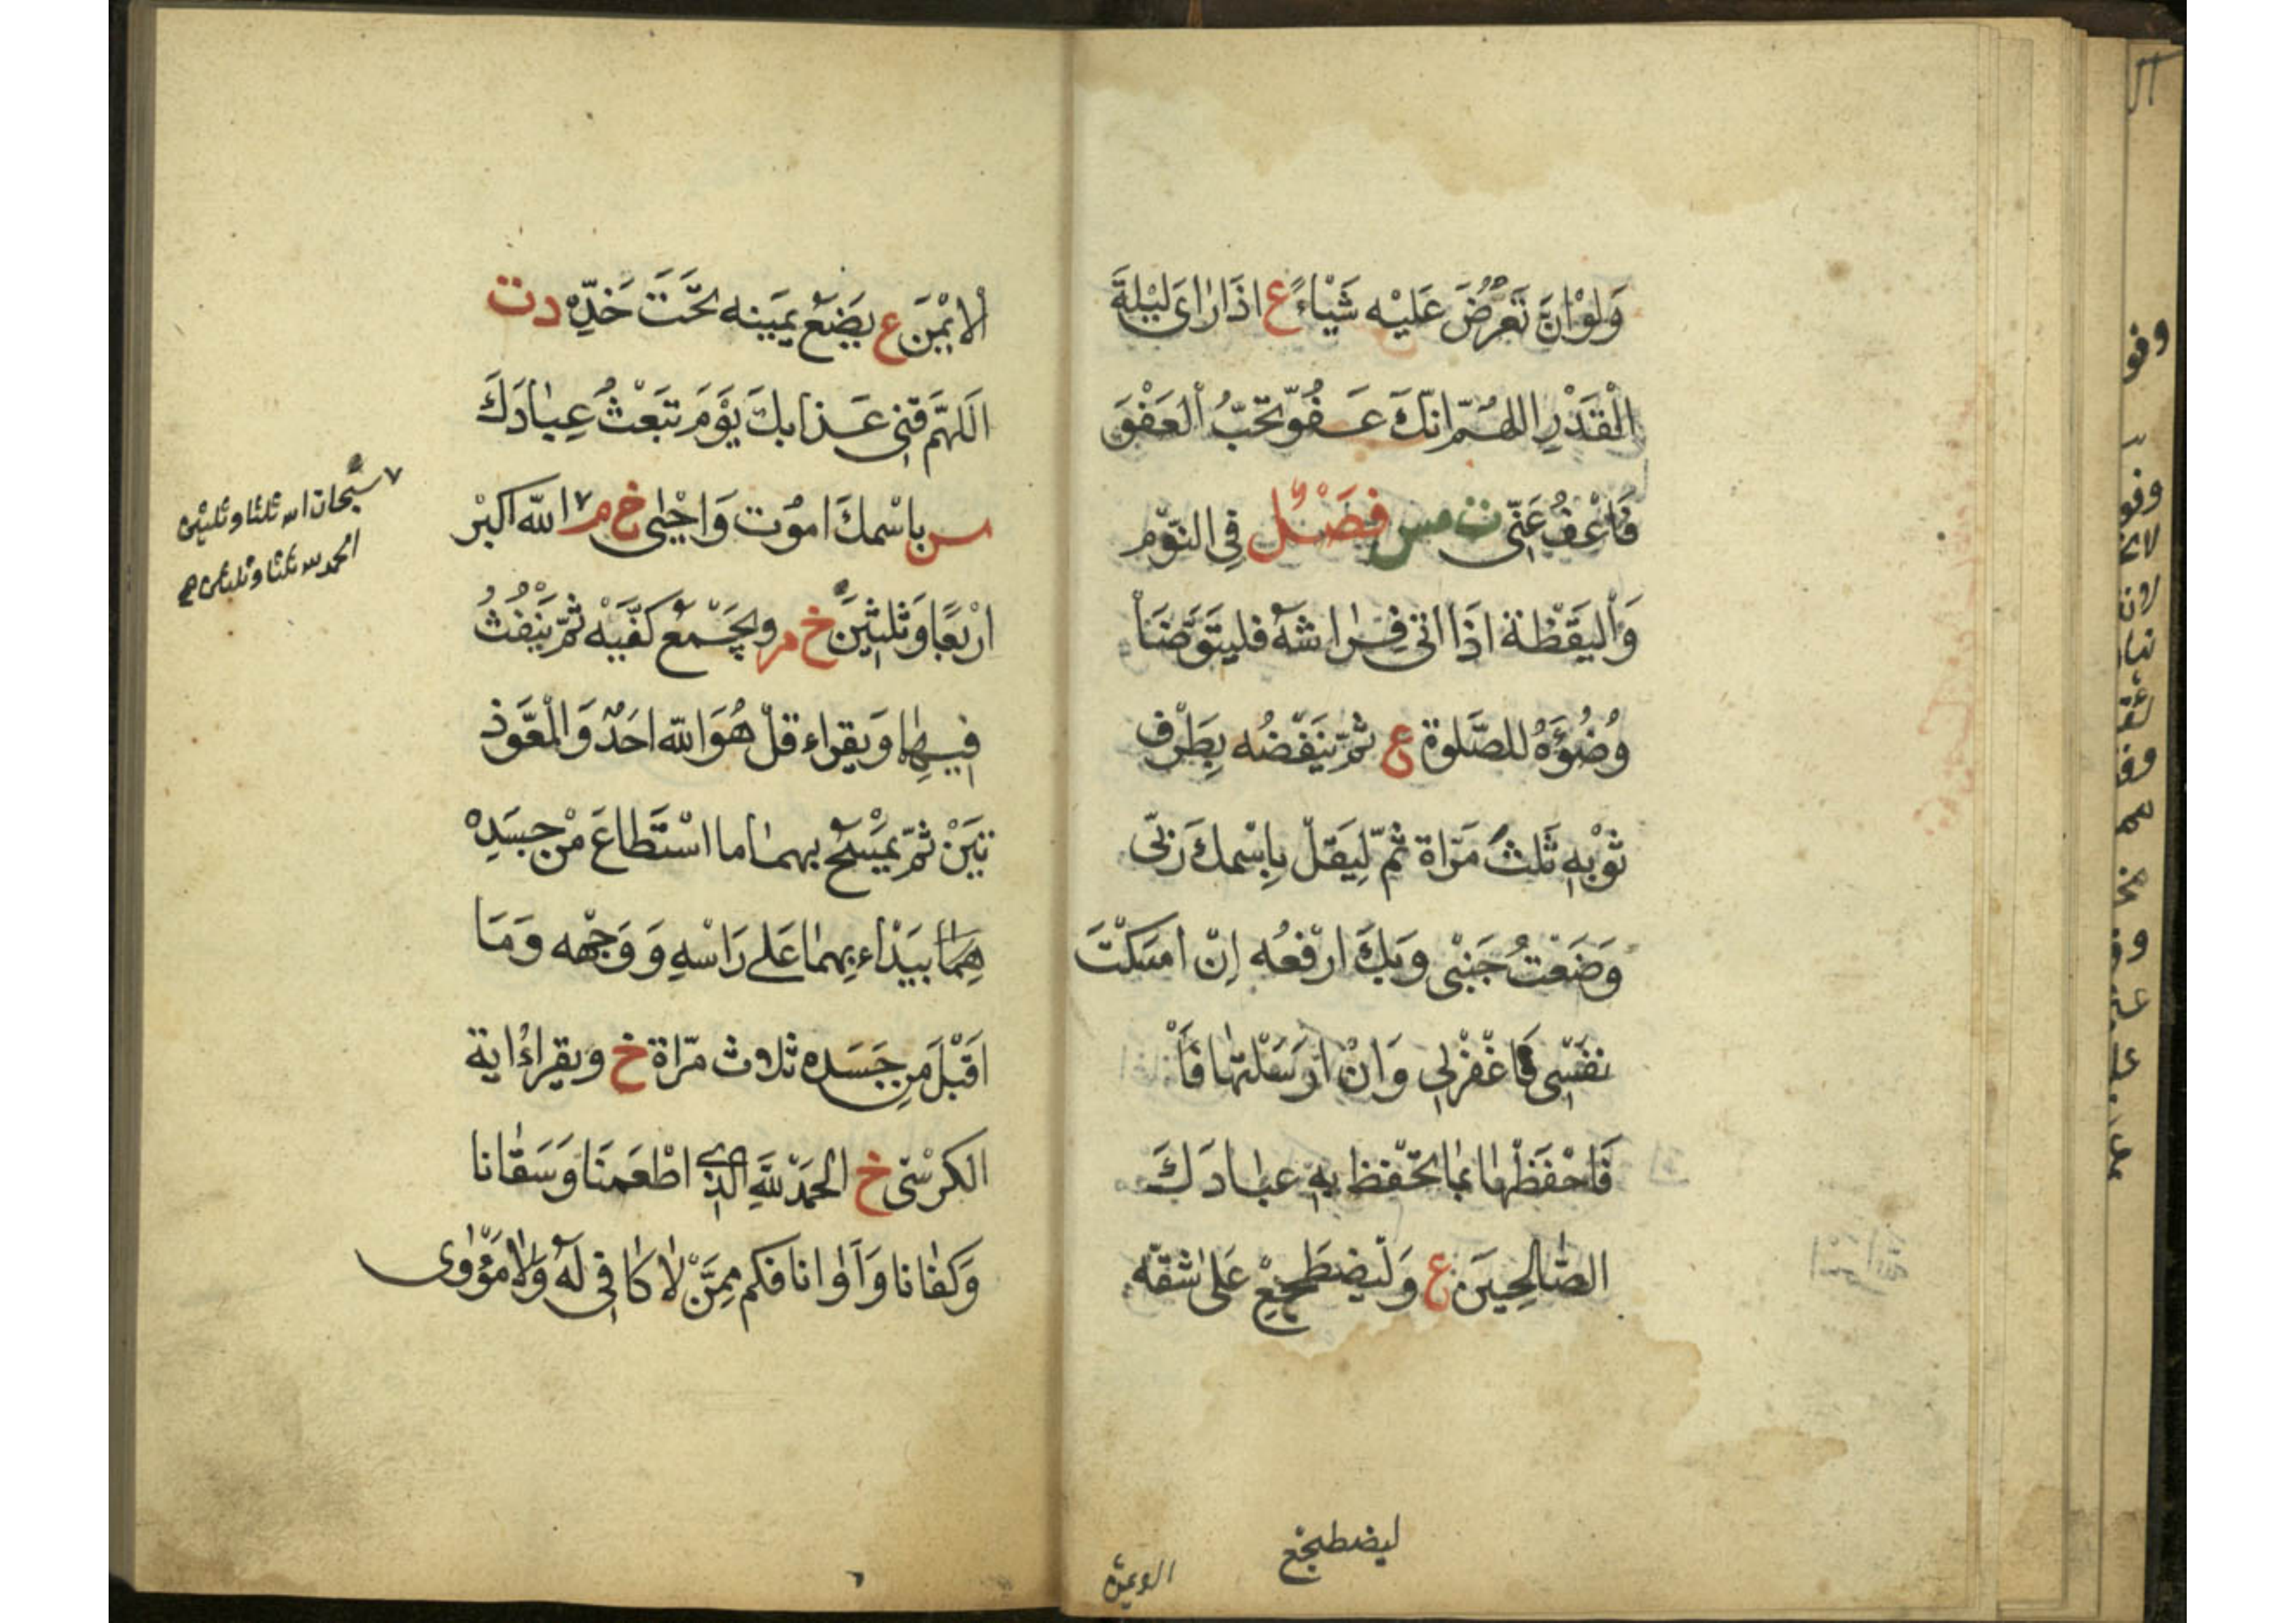 وَلَوْ اَنْ تَعَرُّضَ عَلَيْه شَيْاءً ع اذَا رَاى لَيْلَةَ
الْقَدْرِ اللهُمّ انّكَ عَفُوّ تُحّبُ الْعَفْوَ
فَاعْفُ عَنّى ت مس فَصْلٌ فِى النّوْم
وَالْيَقْظَة اذَا اتى فِرٰاشَهُ فليَتَوَضَاْ
وُضُؤَهُ للصَّلوة ع ثُمّ يَنْفُضُه بِطَرْف
ثَوْبِه ثَلثَ مَرّاة ثُمّ لِيَقلْ بِاسْمكَ رَبّى
وَضَعْتُ جَنْبى وَبكَ ارْفعُه اِنْ امسَكْتَ
نفسِى فَاغْفرْلِى وَانْ ارْسَلْتهٰا فَاْ
فَاحْفَظْهٰا بمٰا تحْفظ بِه عبٰادَكَ
الصّٰالِحِيَن ع وَلْيضطَجِعْ عَلىٰ شقّه
ليضطجع
الْاَيْمَن ع يَضَعْ يَمينه تحْتَ خَدِّه د ت
اَللهُمّ قنِى عَذابكَ يَوْمَ تبْعَثُ عِبٰادَكَ
س باسْمكَ امُوت وَاحْيٰى خ م ٧ الله اكبرْ
ارْبعًا وَثلٰثِينَ خ م ويجْمَع كَفّيْه ثمّ يَنْفُثُ
فيهِمٰا وَيقراء قلْ هُوَ الله احَدٌ وَالمعَّوذ
تيَنْ ثمّ يمْسَحُ بهمٰا ما اسْتَطاعَ منْ جسَدِه
همٰا يبَدْاء بِهمٰا عَلى رَاسْهِ وَوَجْهه وَمَا
اَقبْلَ مِن جَسَده ثلاث مرّاة خ ويقراءُ اية
الكرسْىّ خ الحَمدْ للهِ الذى اطْعَمنَا وَسَقٰانا
وَكفٰانا وَآوٰانا فكم مِمَّنْ لٰا كَافِى لَهُ وَلٰا مَؤْوٰى
٧ سبحان الله ثلثا وثلثين
الحمد لله ثلثا وثلثين